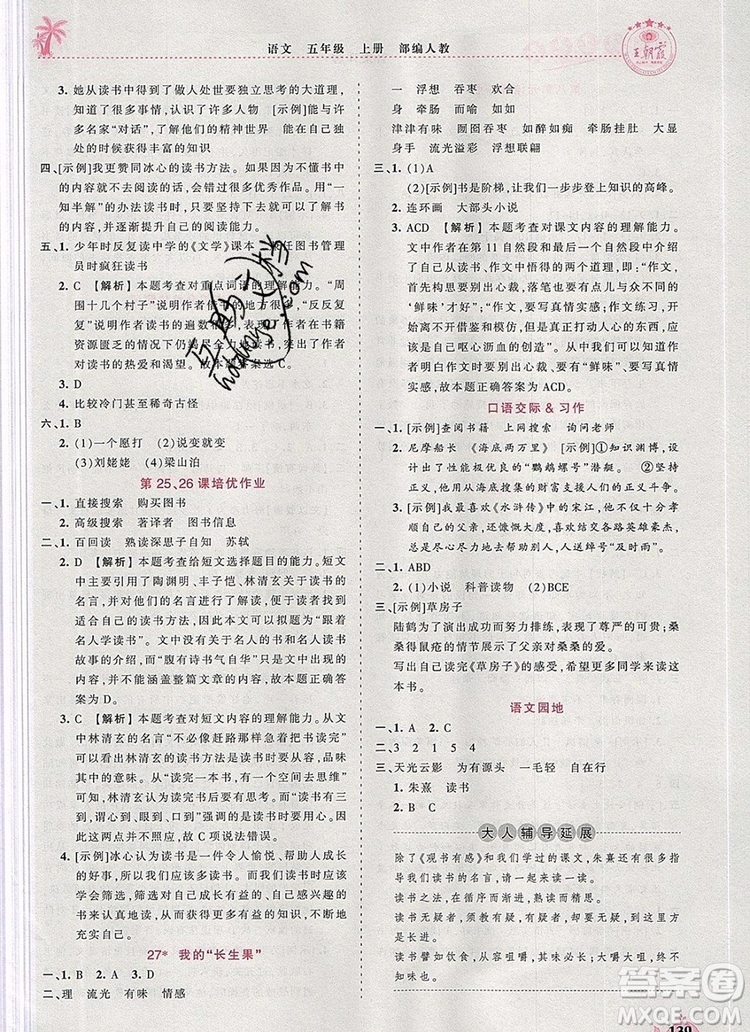 语文 五年级 上册 部编人教
王朝霞
3. 她从读书中学到了做人处世要独立思考的大道理,
知道了很多事情,认识了许多人物 [示例]能与许
多名家“对话”,了解他们的精神世界 能在自己独
处时获得丰富的知识
四、[示例]我更赞同冰心的读书方法。如果因为不懂书中
的内容就不去阅读的话,会错过很多优秀作品。“一
知半解”的读书方法只要坚持下去,就可以提高对书
的兴趣,提升自己的阅读能力。
五、1. 少年时反复读中学的《文学》课本
任图书管理
员时疯狂读书
2. C 【解析】本题考查对重点词语的理解能力。“周
围十几个村子”说明作者借书的范围大,“反反复
复”说明作者读书的遍数很多,表现了作者在书籍
资源匮乏的情况下仍尽全力地读书,体现了作者
对读书的热爱和渴望。故本题答案选C。
3. D
4. 比较冷门甚至稀奇古怪
六、1. B
2. (1)一个愿打 (2)说变就变
(3)刘姥姥 (4)梁山泊
第 25、26 课培优作业
一、1. 直接搜索 购买图书
2. 高级搜索 著译者 图书信息
二、1. 百回读 熟读深思子自知 苏轼
2. D 【解析】本题考查给短文选择题目的能力。短文
中主要引用了陶渊明、丰子恺、林清玄等关于读书的
名言,并对这些名言进行了阐释,得出要像名人一
样读书的结论,因此可以拟题为“跟着
名人学读书”。文中没有关于名人的书和名人读书
故事的介绍,而“腹有诗书气自华”只是引用的名
言,并不能涵盖整篇文章的内容,因此本题答案
为D。
3. C 【解析】本题考查对短文内容的理解能力。从文
中林清玄的名言“不要每次都赶路把书读完”,我们
可以看出他认为读书不能急于求成,要慢慢品
味,其中的意思是“读完一本书,有一个空间去思考
回味”,林清玄认为读书并不是快速读完就能“三
到”,即“眼到、心到、口到”,而是要慢慢品味才能做
到“三到”,故C项说法错误。
4. [示例]冰心认为读书是一件令人愉悦、帮助人成长
的好事情,但并不是所有的书都有益于我们成
长,筛选并选择对自己成长有益的、自己感兴趣的
书来读,会从书中获得更多有益的知识,不断地
充实自己。
27* 我的“长生果”
一、1. B 2. A 3. D
二、理 流光 有味 情感
一 浮想 吞枣 欢合
身 牵肠 而喻 如如
津津有味 囫囵吞枣 如醉如痴 牵肠挂肚 不言而
身手 流光溢彩 浮想联翩
三、1. (1)A
(2)[示例]书是阶梯,让我们一步步登上知识的高峰。
2. 连环画 大部头小说
3. ACD 【解析】本题考查对课文内容的理解能力。
文中作者在第 11 自然段中提到:“作文,
首先构思要别出心裁,落笔也要有点儿与众不同的
‘鲜味’才好”;“作文,要写真情实感;作文练习,开
始离不开借鉴和模仿,但是真正打动人心的东西,应
该是自己呕心沥血的创造”。从这些内容可以看出
作者明白作文构思要新颖、要有“鲜味”、要写真情
实感,故本题正确答案为ACD。
口语交际 & 习作
一、1. [示例]查阅书籍 上网搜索 询问老师
2. 尼摩船长 《海底两万里》 [示例]①知识渊博,他
利用科学知识建造了“鹦鹉螺号”潜艇。 ②乐善好
施,他用从海底搜集的财富支援正义斗争。
3. [示例]我最喜欢《水浒传》中的宋江,他为人忠厚孝
顺,乐善好施,喜欢结交各路英雄豪杰,
并总能在他人有困难时伸出援手,人称“及时雨”。
二、1. ABD
2. (1)小说 科普读物 (2)BCE
三、[示例]草房子
陆鹤为了演出成功而努力排练,表现了尊严的可贵;桑
桑得鼠疮的情节展示了父亲对桑桑的爱。
写出自己读完《草房子》的感受,希望更多人来阅读这
本书。
语文园地
一、1. A 2. C
二、3 2 1 5 4
三、天光云影 为有源头 一毛轻 自在行
四、1. 朱熹 读书
2. B C
大人辅导延展
除了《观书有感》和我们学过的课文,朱熹还有很多名言
指导我们读书,我们一起来读一读。
读书之法,在循序而渐进,熟读而精思。
读书无疑者,须教有疑;有疑者,却要无疑,到这里方
是长进。
读书譬如饮食,从容咀嚼,其味必长;大嚼大咽,终不知
味也。
答案圈
MXQE.COM
139